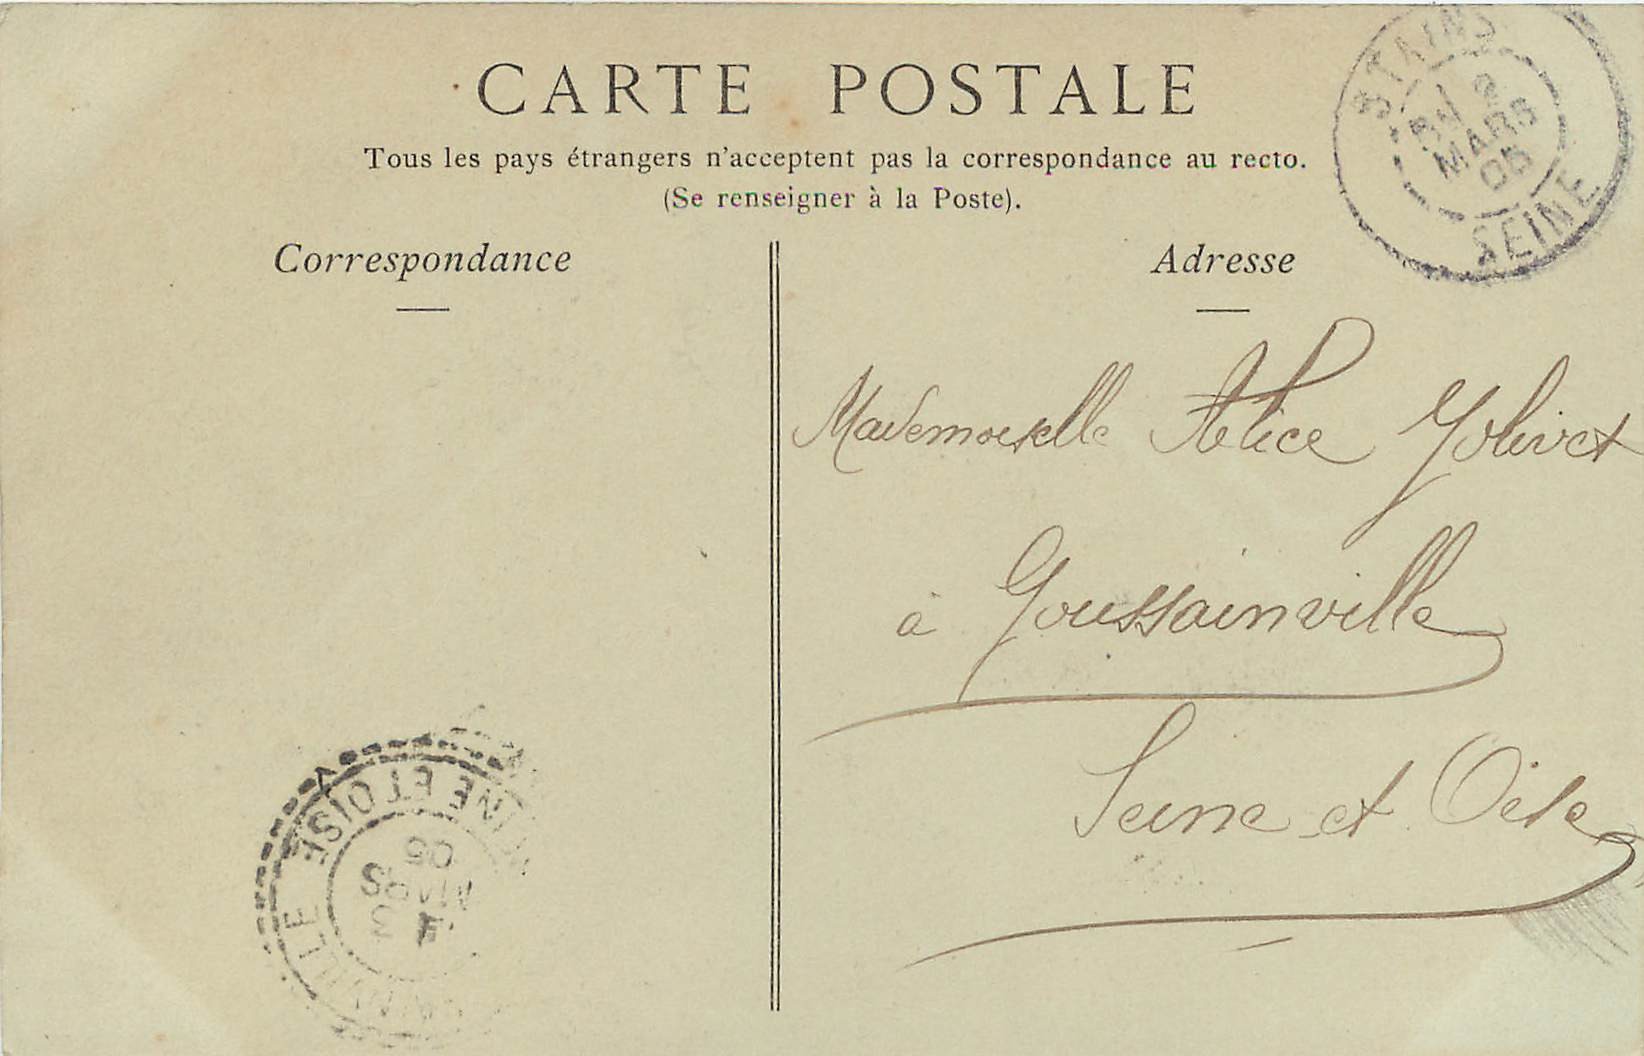 CARTE POSTALE
Tous les pays étrangers n'acceptent pas la correspondance au recto.
(Se renseigner à la Poste).
Correspondance
Adresse
STAINS
2
MARS
05
SEINE
Mademoiselle Alice Jolivet
à Goussainville
Seine et Oise
NE ET OISE
3
MARS
05